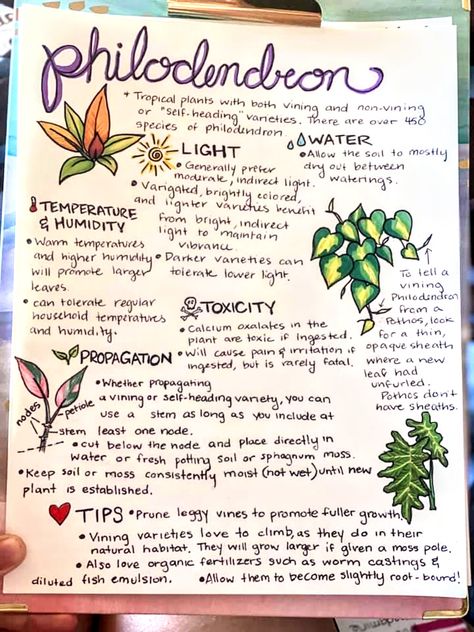 philodendron
* Tropical plants with both vining and non-vining
or "self-heading" varieties. There are over 450
species of philodendron.
LIGHT
• Generally prefer
moderate, indirect light.
• Varigated, brightly colored,
and lighter varieties benefit
from bright, indirect
light to maintain
vibrance.
• Darker varieties can
tolerate lower light.
WATER
• Allow the soil to mostly
dry out between
waterings.
TEMPERATURE
& HUMIDITY
• Warm temperatures
and higher humidity
will promote larger
leaves.
• can tolerate regular
household temperatures
and humidity.
To tell a
vining
Philodendron
from a
Pothos, look
for a thin,
opaque sheath
where a new
leaf had
unfurled.
Pothos don't
have sheaths.
TOXICITY
• Calcium oxalates in the
plant are toxic if ingested.
• Will cause pain & irritation if
ingested, but is rarely fatal.
PROPAGATION
nodes
petiole
stem
• Whether propagating
a vining or self-heading variety, you can
use a stem as long as you include at
least one node.
• cut below the node and place directly in
water or fresh potting soil or sphagnum moss.
• Keep soil or moss consistently moist (not wet) until new
plant is established.
TIPS
• Prune leggy vines to promote fuller growth.
• Vining varieties love to climb, as they do in their
natural habitat. They will grow larger if given a moss pole.
• Also love organic fertilizers such as worm castings &
diluted fish emulsion.
• Allow them to become slightly root-bound!